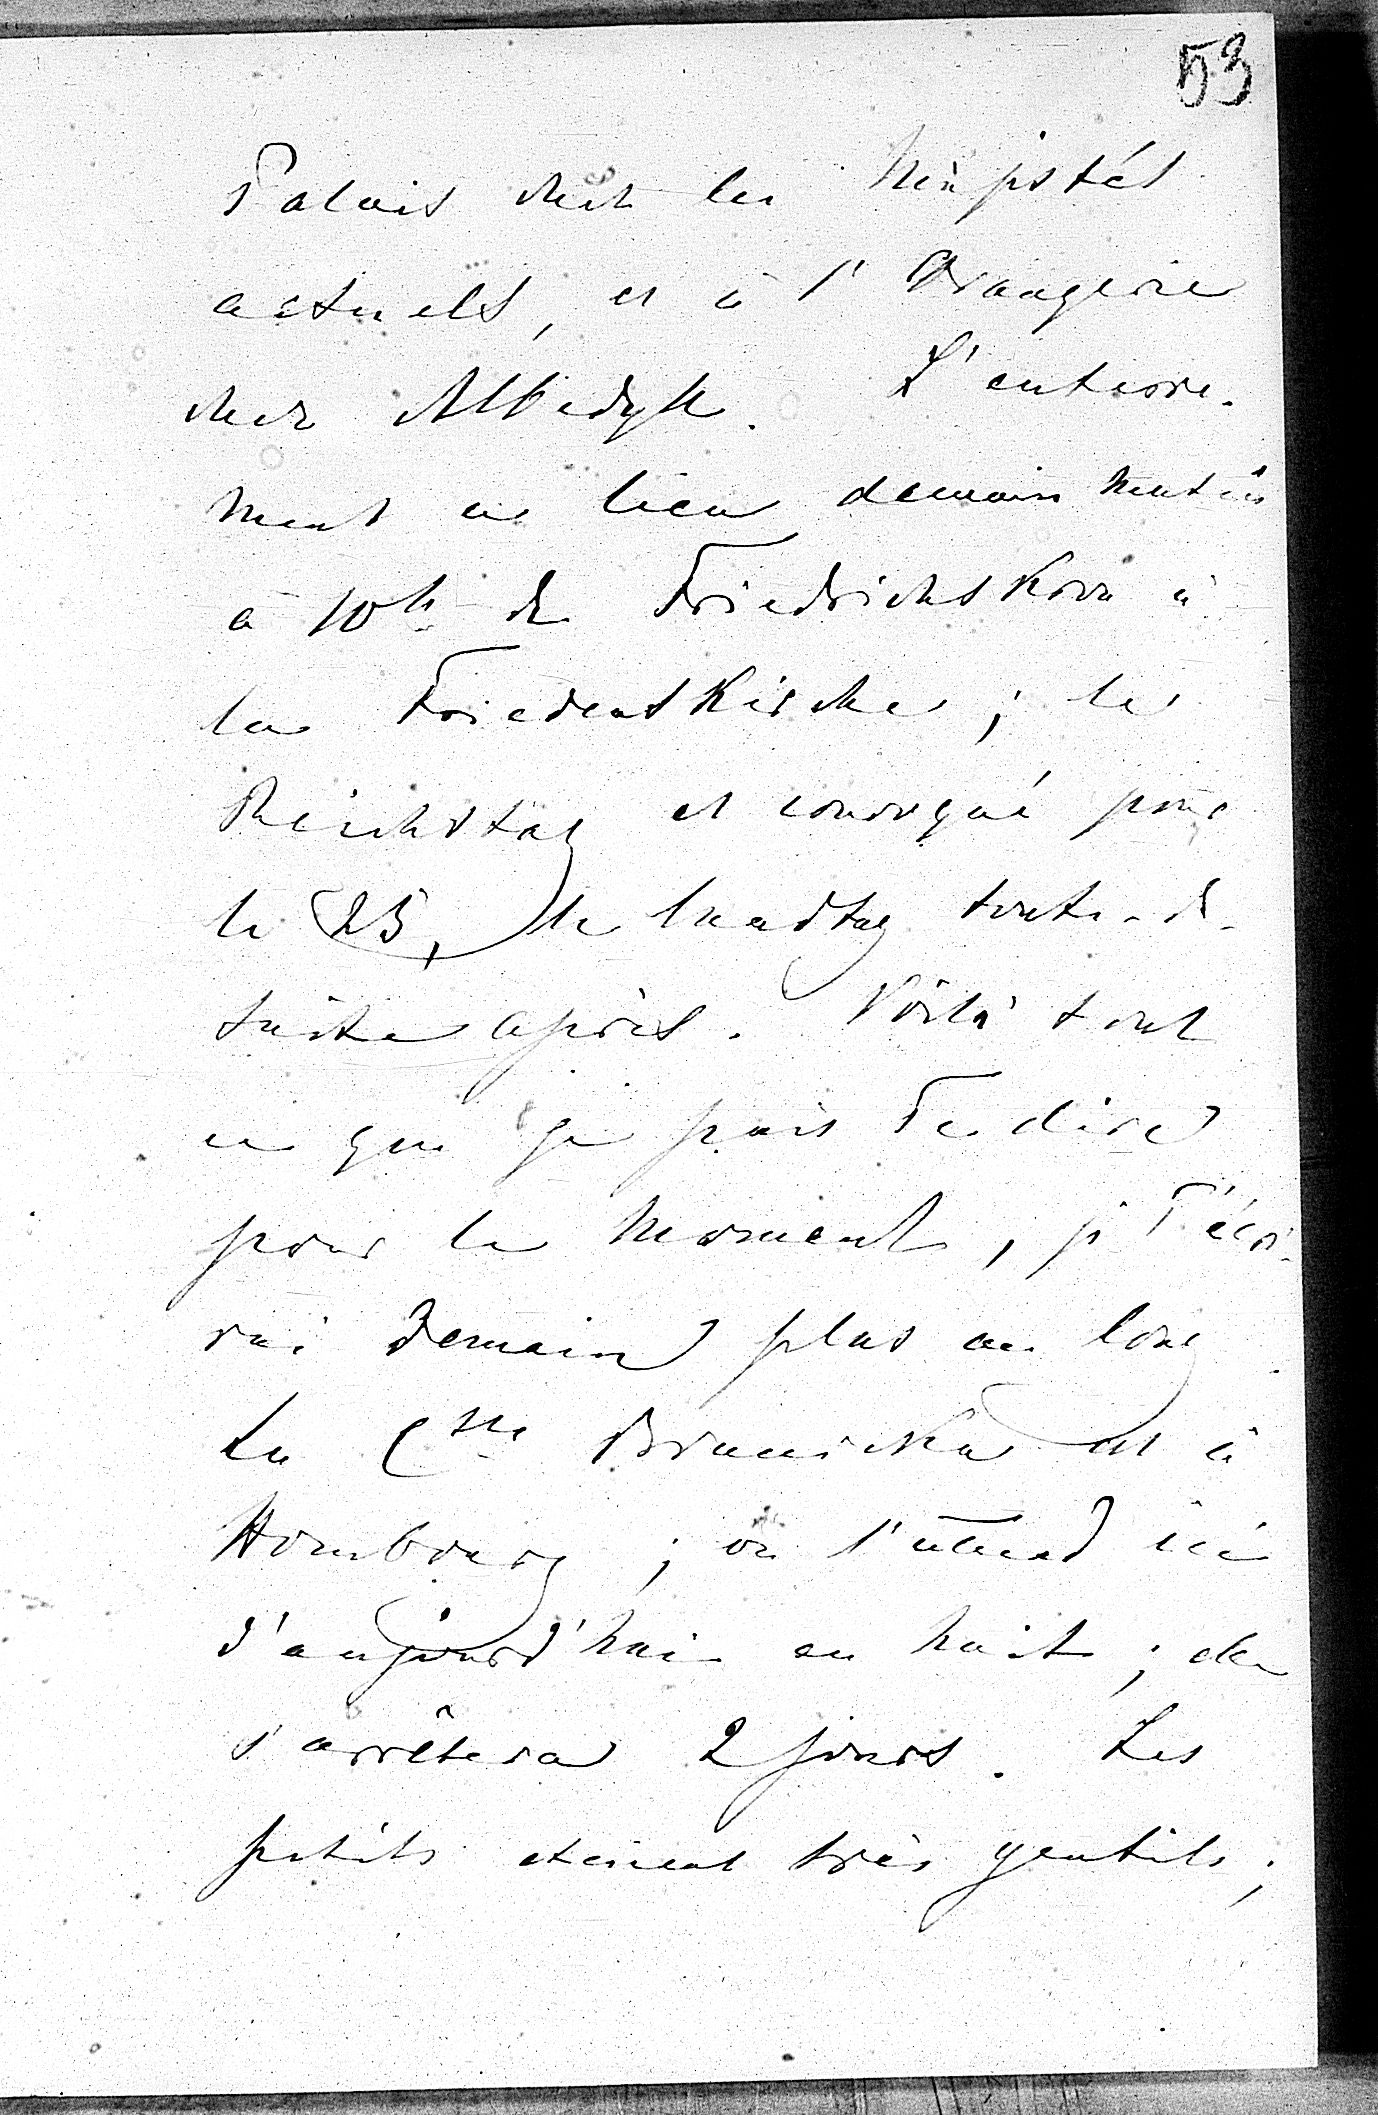 53
Palais chez les Majestés
actuels, et à l'Orangerie
chez Albedyll. L'enterre-
ment a lieu demain matin
à 10h de Friedrichskron à
la Friedenskirche; le
Reichstag est convoqué pour
le 25, le Landtag toute-de-
suite après. Voilà tout
ce que je puis Te dire
pour le moment, je T'écri-
rai demain plus au long.
La Csse Branicka est à
Hombourg; on l'attend ici
d'aujourd'hui en huit; elle
s'arrêtera 2 jours. Les
petits étaient très gentils;